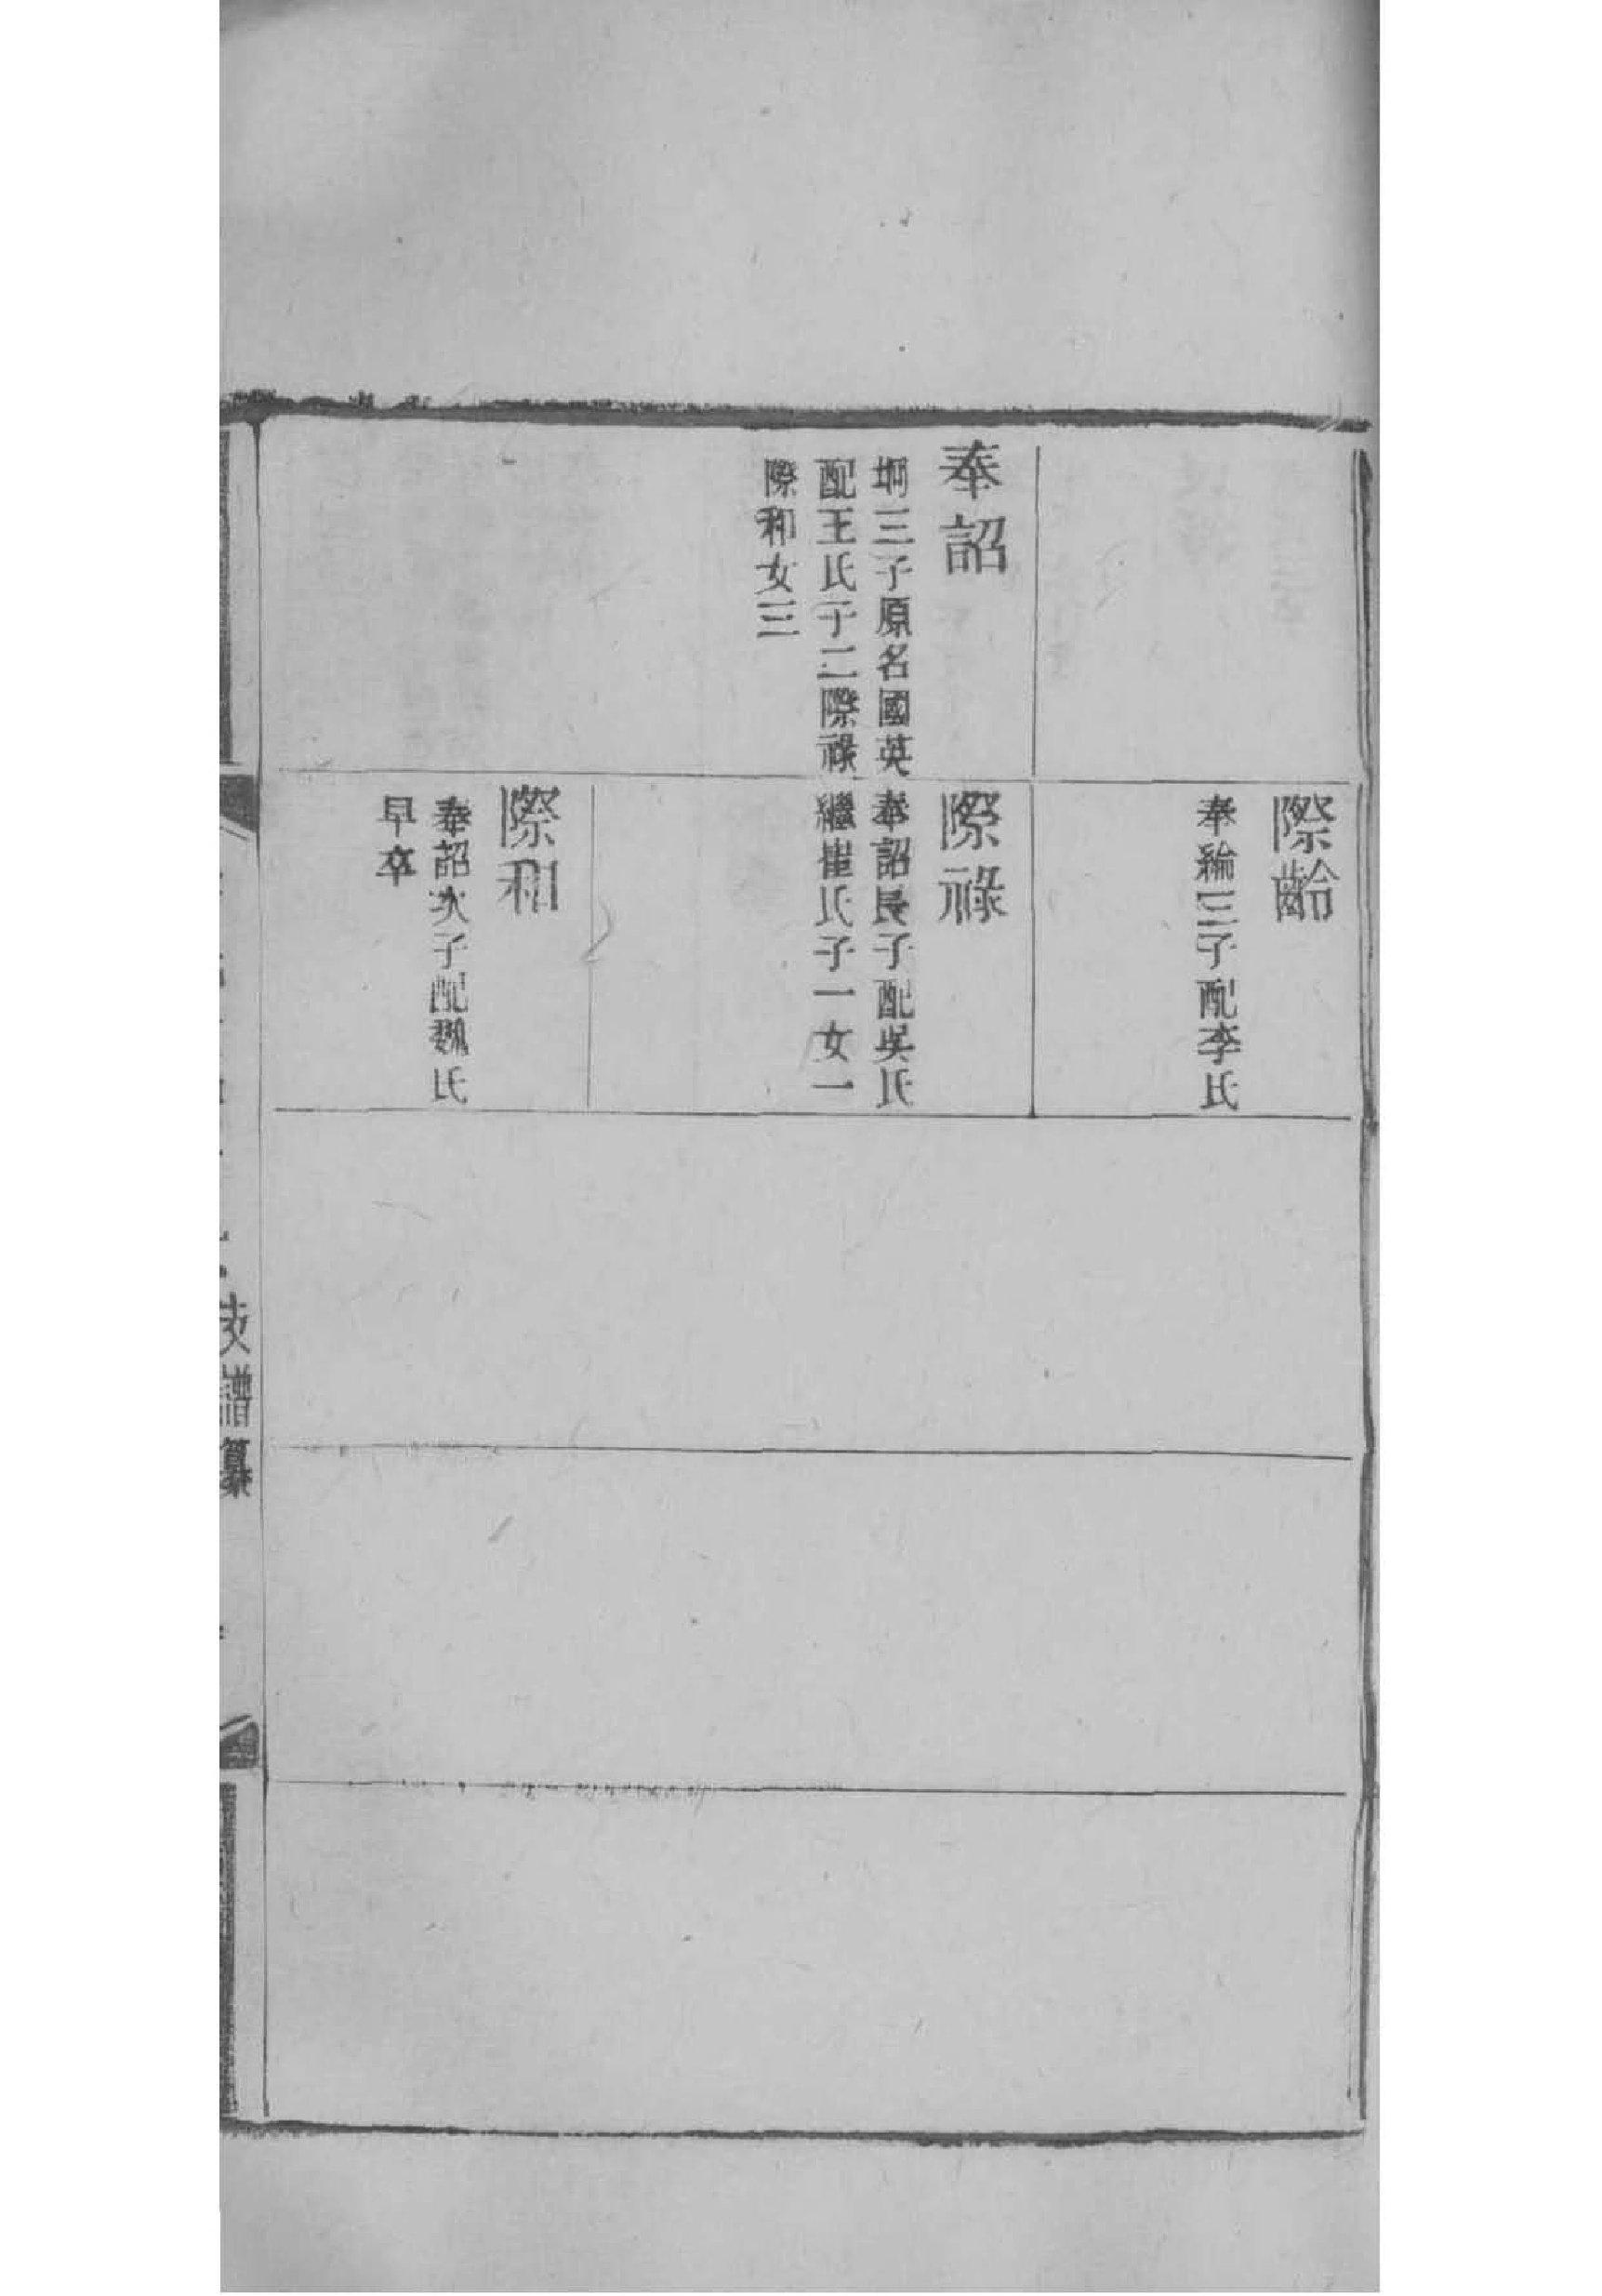 奉詔
坰三子原名國英
配王氏子二際祿
際和女三
際齡
奉綸三子配李氏
際祿
奉詔長子配吳氏
繼崔氏子一女一
際和
奉詔次子配魏氏
早卒
支譜纂